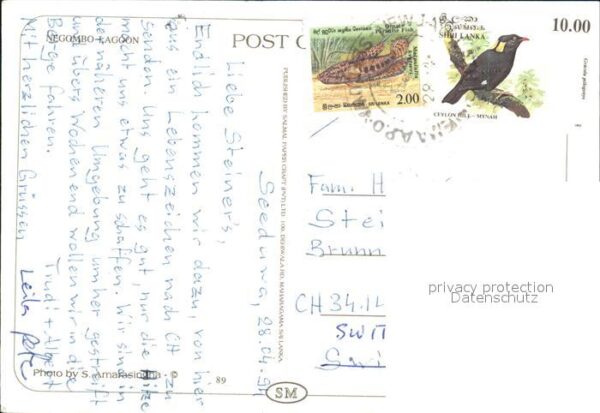 NEGOMBO LAGOON
POST C
Seeduwa, 28.04.91
Liebe Steiner's,
Endlich kommen wir dazu, von hier
aus ein Lebenszeichen nach CH zu
senden. Uns geht es gut, nur die Hitze
macht uns etwas zu schaffen. Wir sind in
der näheren Umgebung umher gestreift
und übers Wochenend wollen wir in die
Berge fahren.
Mit herzlichen Grüssen
Trudi + Albert
Leila
Photo by S. Amarasinghe - ©
89
SM
ශ්‍රී ලංකා இலங்கை SRI LANKA
2.00
ශ්‍රී ලංකා
இலங்கை
SRI LANKA
10.00
CEYLON HILL-MYNAH
Gracula ptilogenys
Fam. H
Stei
Brunn
CH 34.14
SWIT
privacy protection
Datenschutz